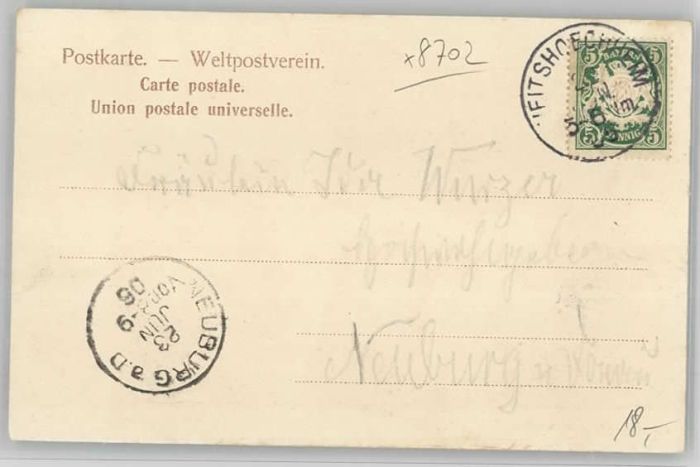 Postkarte. — Weltpostverein.
Carte postale.
Union postale universelle.
x8702
VEITSHOECHHEIM
5 5
5 PFENNIG 5
Fräulein Ida Wurzer
Neuburg a Donau
NEUBURG a.D
23
JUN
VOR 8-9
06
18,-